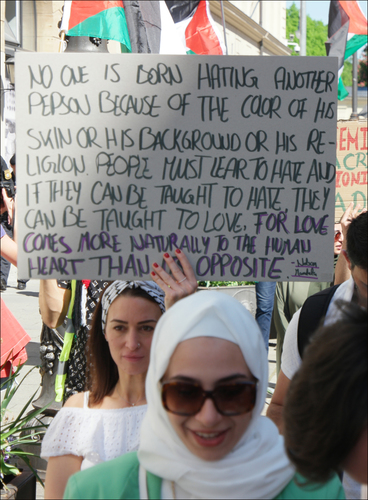 NO ONE IS BORN HATING ANOTHER
PERSON BECAUSE OF THE COLOR OF HIS
SKIN OR HIS BACKGROUND OR HIS RE-
LIGION. PEOPLE MUST LEAR TO HATE AND
IF THEY CAN BE TAUGHT TO HATE, THEY
CAN BE TAUGHT TO LOVE, FOR LOVE
COMES MORE NATURALLY TO THE HUMAN
HEART THAN OPPOSITE
- Nelson
Mandela
SEMI
ACR
IONI
AD